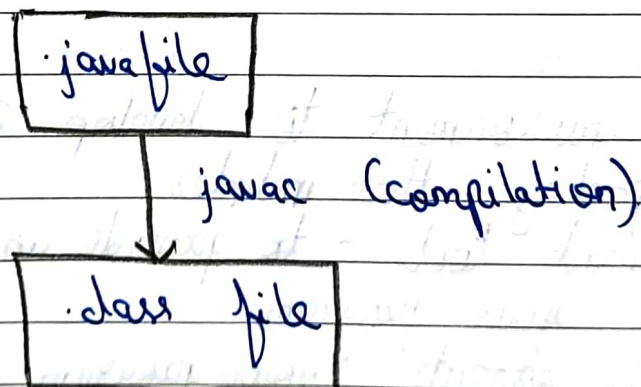 .java file
javac (compilation)
.class file